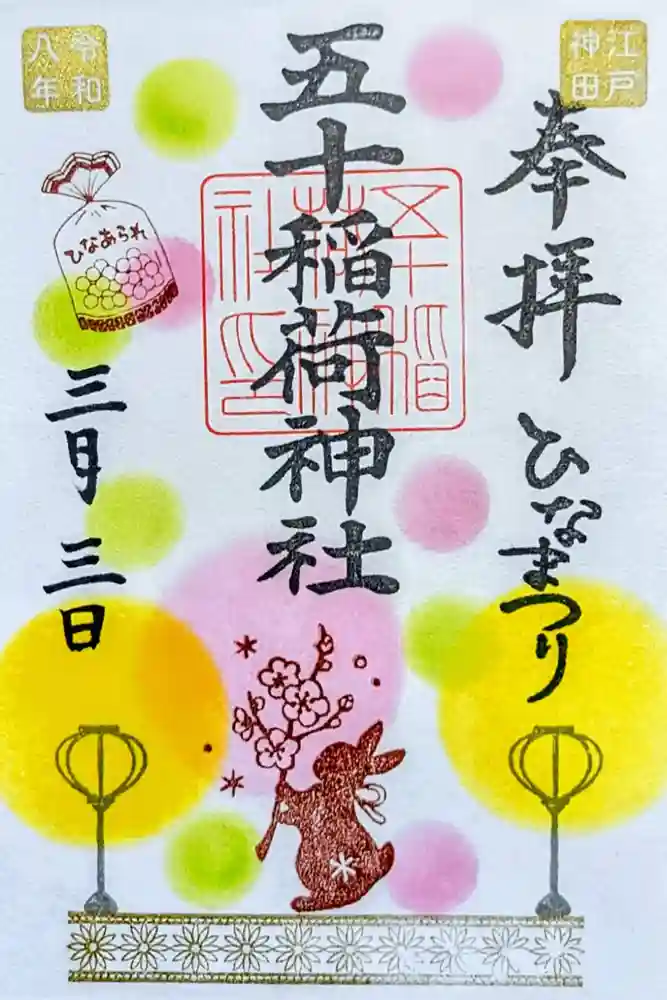 江戸
神田
奉拝
ひなまつり
五十稲荷神社
五十稲
荷神
社之印
令和
八年
ひなあられ
三月三日